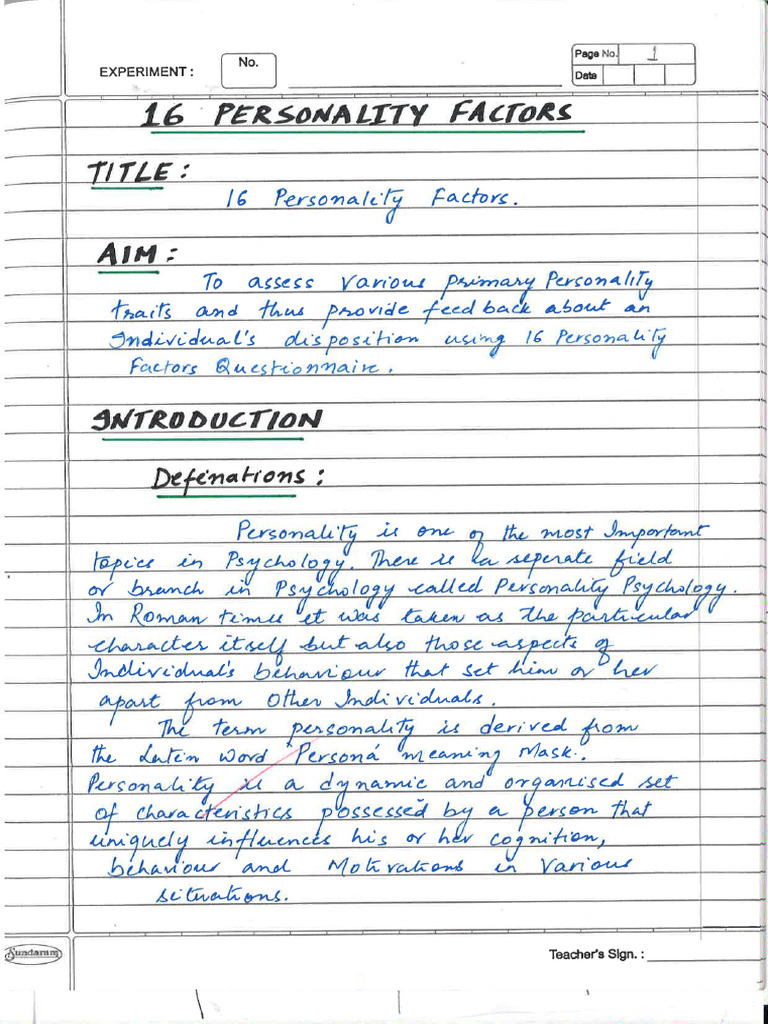 EXPERIMENT :
No.
Page No. 1
Date
16 PERSONALITY FACTORS
TITLE :
16 Personality Factors.
AIM :
To assess various primary Personality
traits and thus provide feedback about an
Individual's disposition using 16 Personality
Factors Questionnaire.
INTRODUCTION
Defenations :
Personality is one of the most Important
topics in Psychology. There is a seperate field
or branch in Psychology called Personality Psychology.
In Roman times it was taken as the particular
character itself but also those aspects of
Individual's behaviour that set him or her
apart from Other Individuals.
The term personality is derived from
the Latin word "Persona" meaning Mask.
Personality is a dynamic and organised set
of characteristics possessed by a person that
uniquely influences his or her cognition,
behaviour and Motivations in Various
situations.
Sundaram
Teacher's Sign. :